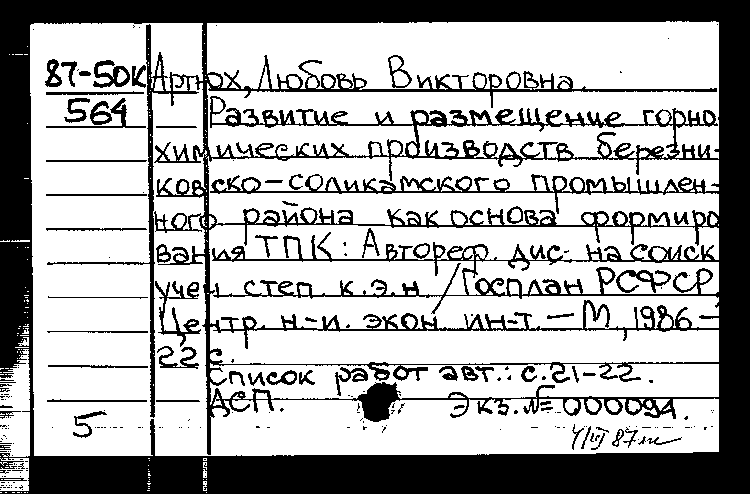 87-50К Артюх, Любовь Викторовна.
564 Развитие и размещение горно
химических производств березни-
ковско-соликамского промышлен-
ного района как основа формиро
вания ТПК: Автореф. дис. на соиск
учен степ. к.э.н / Госплан РСФСР,
Центр. н.-и. экон ин-т. — М., 1986 —
22 с.
Список работ авт.: с.21-22.
ДСП. Экз. № 000094.
5
87